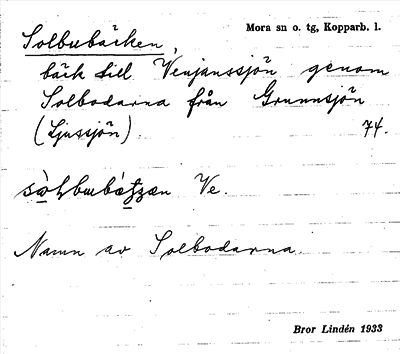 Solbubäcken,
Mora sn o. tg, Kopparb. l.
bäck till Venjanssjön genom
Solbodarna från Grunnsjön
(Ljussjön) 74.
Ve.
Namn av Solbodarna.
Bror Lindén 1933